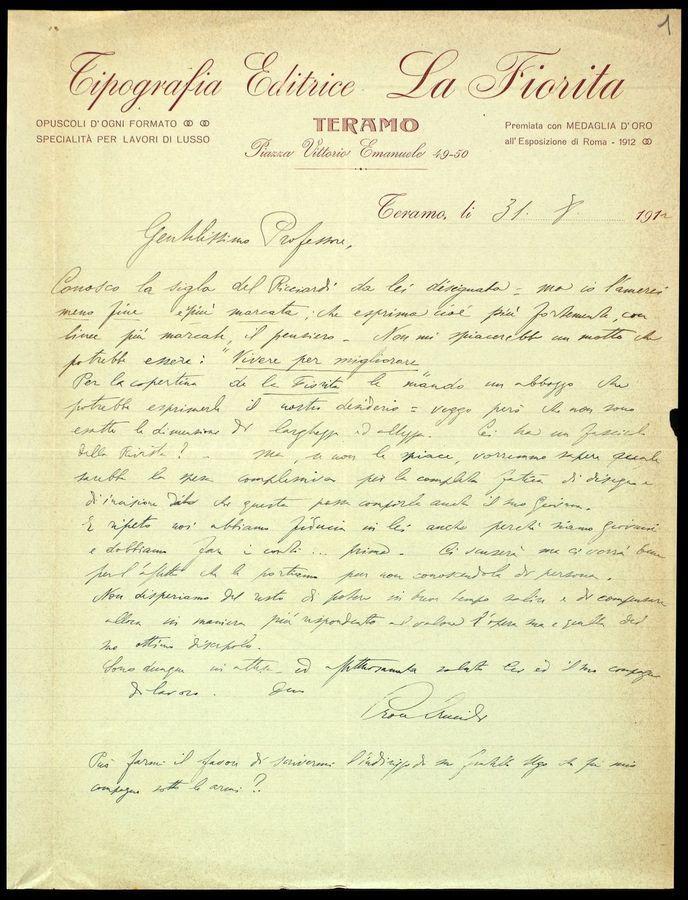 1
Tipografia Editrice La Fiorita
OPUSCOLI D'OGNI FORMATO
SPECIALITÀ PER LAVORI DI LUSSO
TERAMO
Piazza Vittorio Emanuele 49-50
Premiata con MEDAGLIA D'ORO
all'Esposizione di Roma - 1912
Teramo, li 31. 8. 191
Gentilissimo Professore,
Conosco la sigla del Ricciardi da lei disegnata = ma io l'amerei
meno fine e più marcata, che esprima cioè più fortemente, con
linee più marcate, il pensiero. Non mi spiacerebbe un motto che
potrebbe essere: "Vivere per migliorare
Per la copertina de la Fiorita le mando un abbozzo che
potrebbe esprimerle il nostro desiderio = veggo però che non sono
esatte le dimensioni di larghezza ed altezza. Lei ha un fascicolo
della Rivista? - ma, se non le spiace, vorremmo sapere quale
sarebbe la spesa complessiva per la completa fatica di disegno e
di incisione che questa possa compierla anche il suo Geromi.
E ripeto noi abbiamo fiducia in lei anche perché siamo giovani
e dobbiamo fare i conti ... prima. Ci scuserà ma ci vorrà bene
per l'affetto che le portiamo pur non conoscendola di persona.
Non disperiamo del resto di potere in buon tempo salire e di compensare
allora in maniera più rispondente al valore l'opera sua e quella del
suo ottimo discepolo.
Sono dunque in attesa ed affettuosamente saluto Lei ed il suo compagno
di lavoro.
Può farmi il favore di scrivermi l'indirizzo di Ugo che fu mio
compagno sotto le armi?